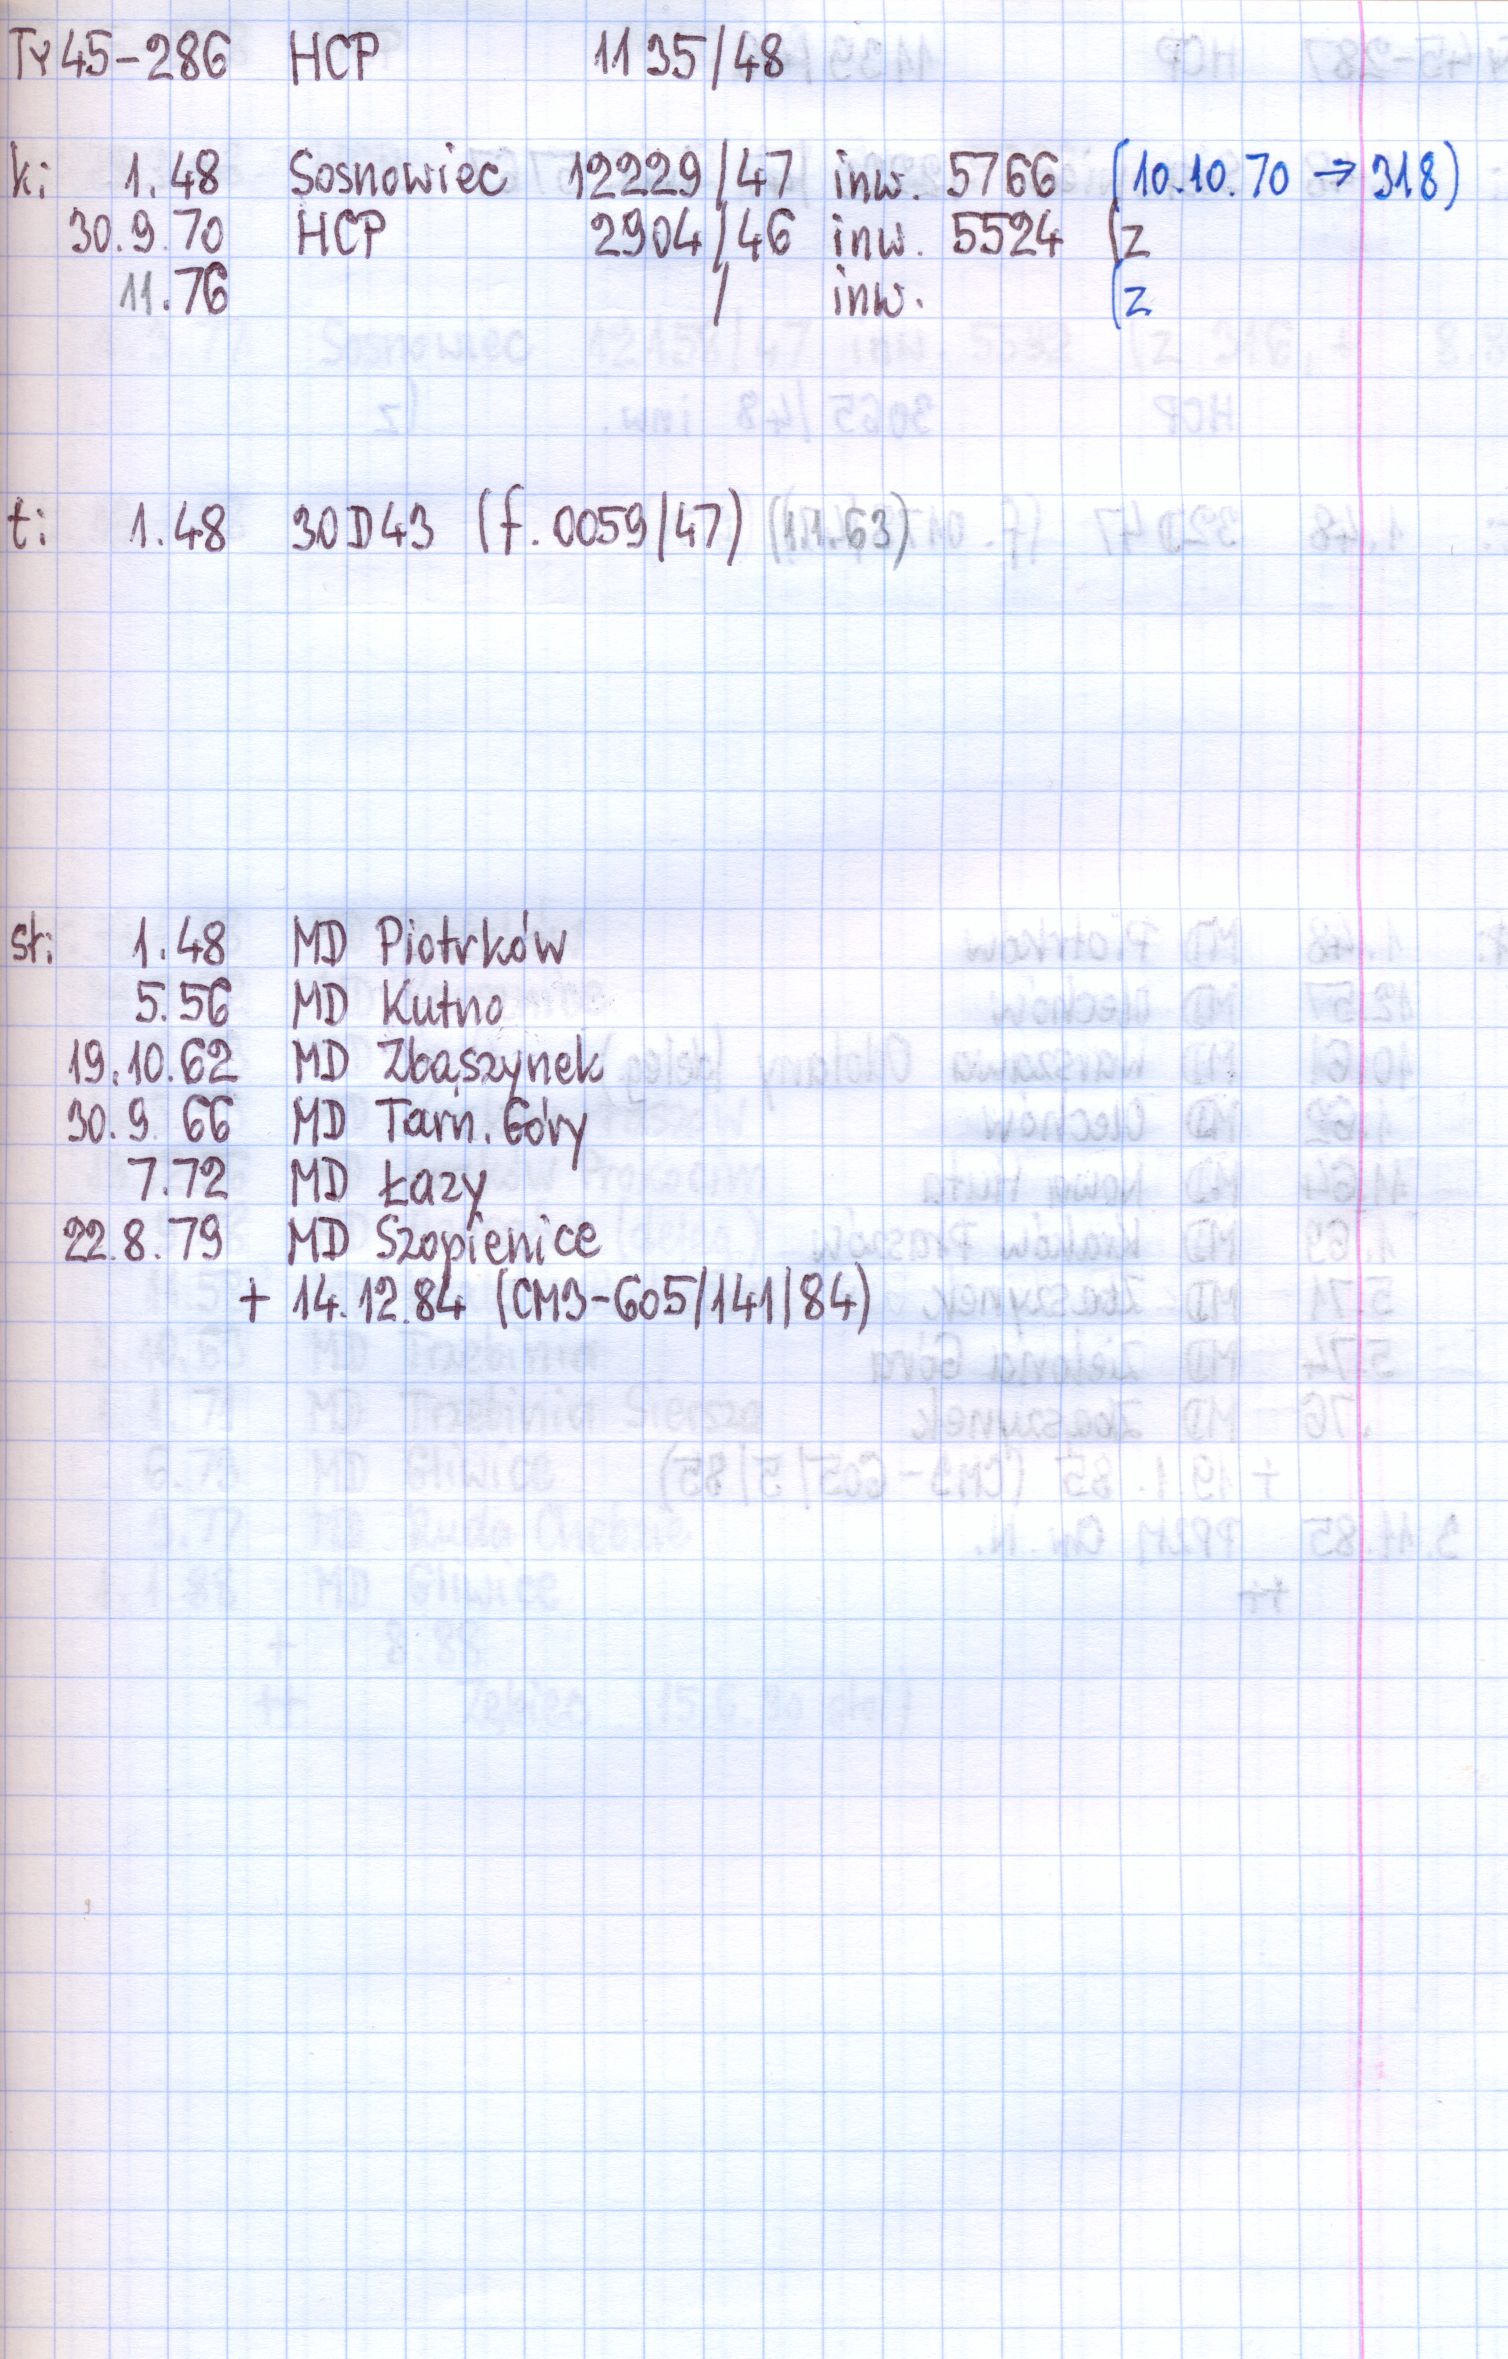 Ty45-286 HCP 1135/48
k: 1.48 Sosnowiec 12229/47 inw. 5766 (10.10.70 → 318)
30.9.70 HCP 2904/46 inw. 5524 (z
11.76 / inw. (z
t: 1.48 30D43 (f. 0059/47) (1.1.63)
st: 1.48 MD Piotrków
5.56 MD Kutno
19.10.62 MD Zbąszynek
30.9 66 MD Tarn. Góry
7.72 MD Łazy
22.8.79 MD Szopienice
+ 14.12.84 (CM3-605/141/84)